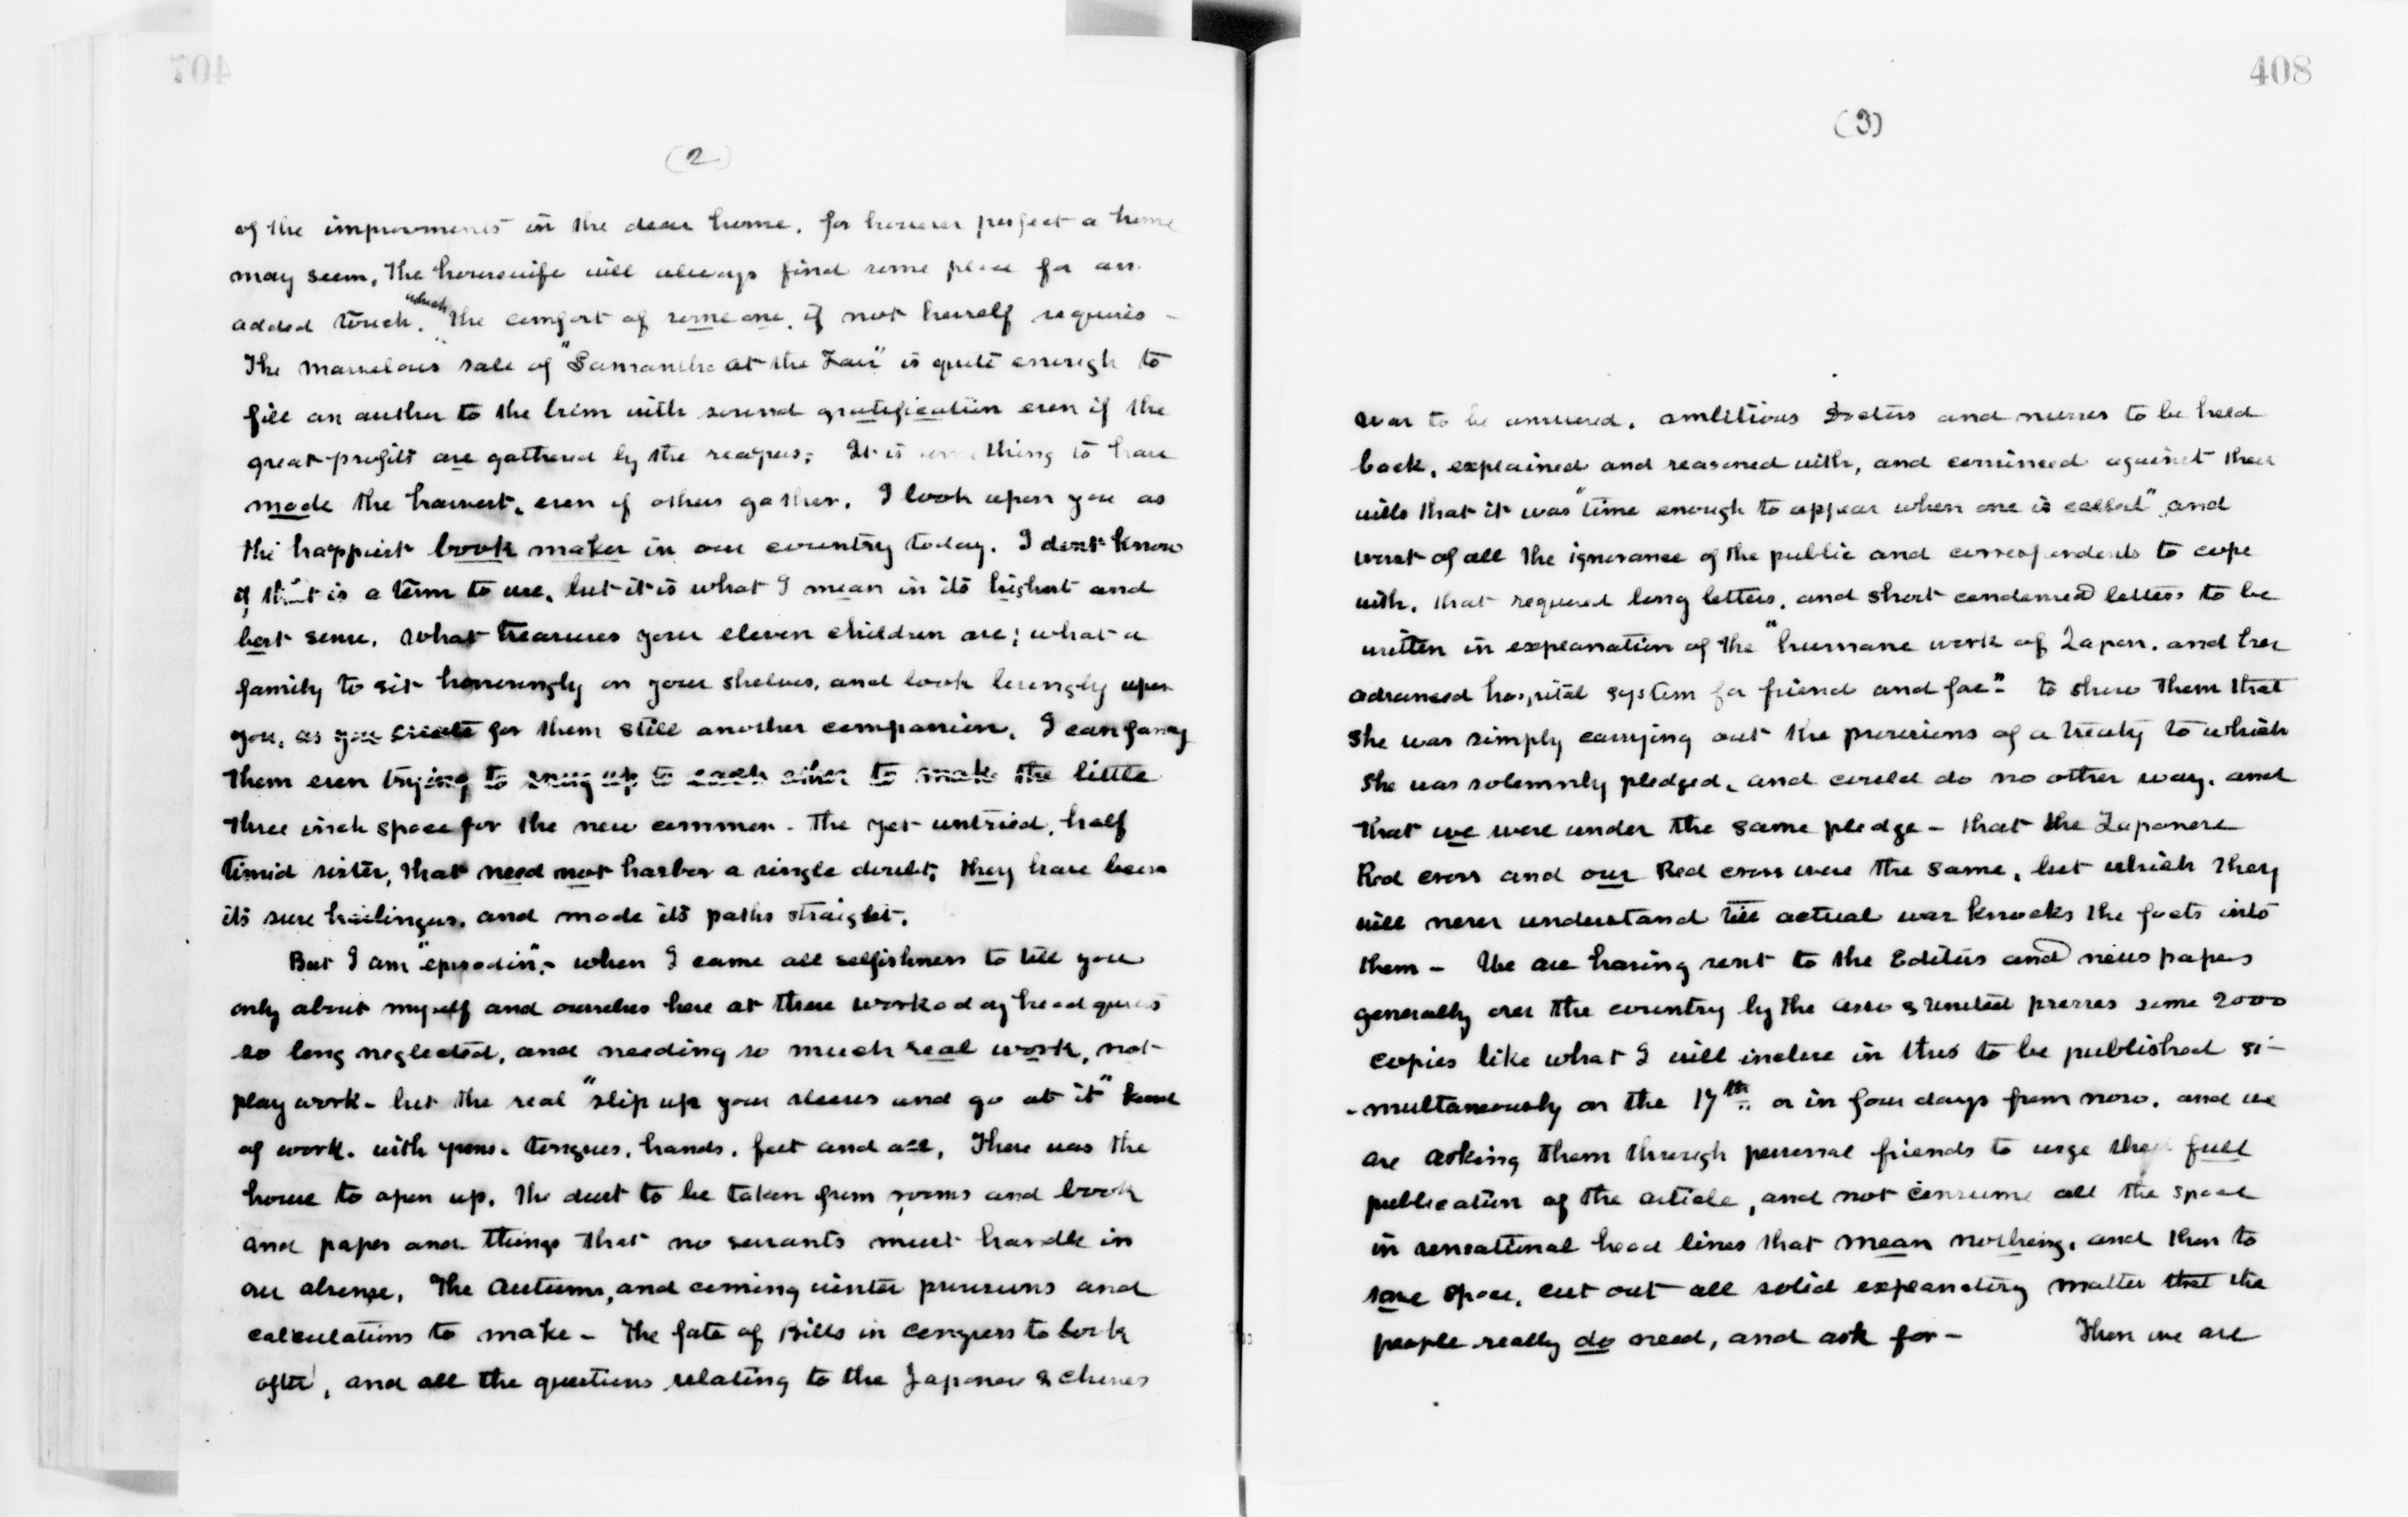 407
(2)
of the improvments in the dear home, for however perfect a home
may seem, the housewife will always find some place for an
added touch, which the comfort of some one, if not herself requires -
The marvelous sale of "Samantha at the Fair" is quite enough to
fill an author to the brim with sound gratification even if the
great profits are gathered by the reapers; It is something to have
made the harvest, even if others gather. I look upon you as
the happiest book maker in our country today. I dont know
if that is a term to use, but it is what I mean in its highest and
best sense. What treasures your eleven children are; what a
family to sit honoringly on your shelves, and look lovingly upon
you, as you create for them still another companion. I can fancy
them even trying to snug up to each other to make the little
three inch space for the new commer - the yet untried, half
timid sister, that need not harbor a single doubt; they have been
its sure and made its paths straight.
But I am "episodin", - when I came all selfishness to tell you
only about myself and ourselves here at these workaday headqurts
so long neglected, and needing so much real work, not
play work - but the real "slip up your sleeves and go at it" kind
of work. with pens, tongues, hands, feet and all, There was the
house to open up, the dust to be taken from rooms and book
and paper and things that no servants must handle in
our absense, The Autumn, and coming winter provisions and
calculations to make - The fate of Bills in Congress to look
after, and all the questions relating to the Japanese & Chines
408
(3)
war to be answered, ambitious Doctors and nurses to be held
back, explained and reasoned with, and convinced against their
wills that it was "time enough to appear when one is called" and
worst of all the ignorance of the public and correspondents to cope
with, that required long letters, and short condensed letters to be
written in explanation of the "humane work of Japan, and her
advanced hospital system for friend and foe" - to show them that
she was simply carrying out the provisions of a treaty to which
she was solemnly pledged, and could do no other way, and
that we were under the same pledge - that the Japanese
Red cross and our Red cross were the same, but which they
will never understand till actual war knocks the facts into
them - We are having sent to the Editors and news papers
generally over the country by the asso & united presses some 2000
copies like what I will inclose in this to be published si-
-multaneously on the 17th or in four days from now, and we
are asking them through personal friends to urge the full
publication of the article, and not consume all the space
in sensational head lines that mean nothing, and then to
save space, cut out all solid explanatory matter that the
people really do need, and ask for - Then we are